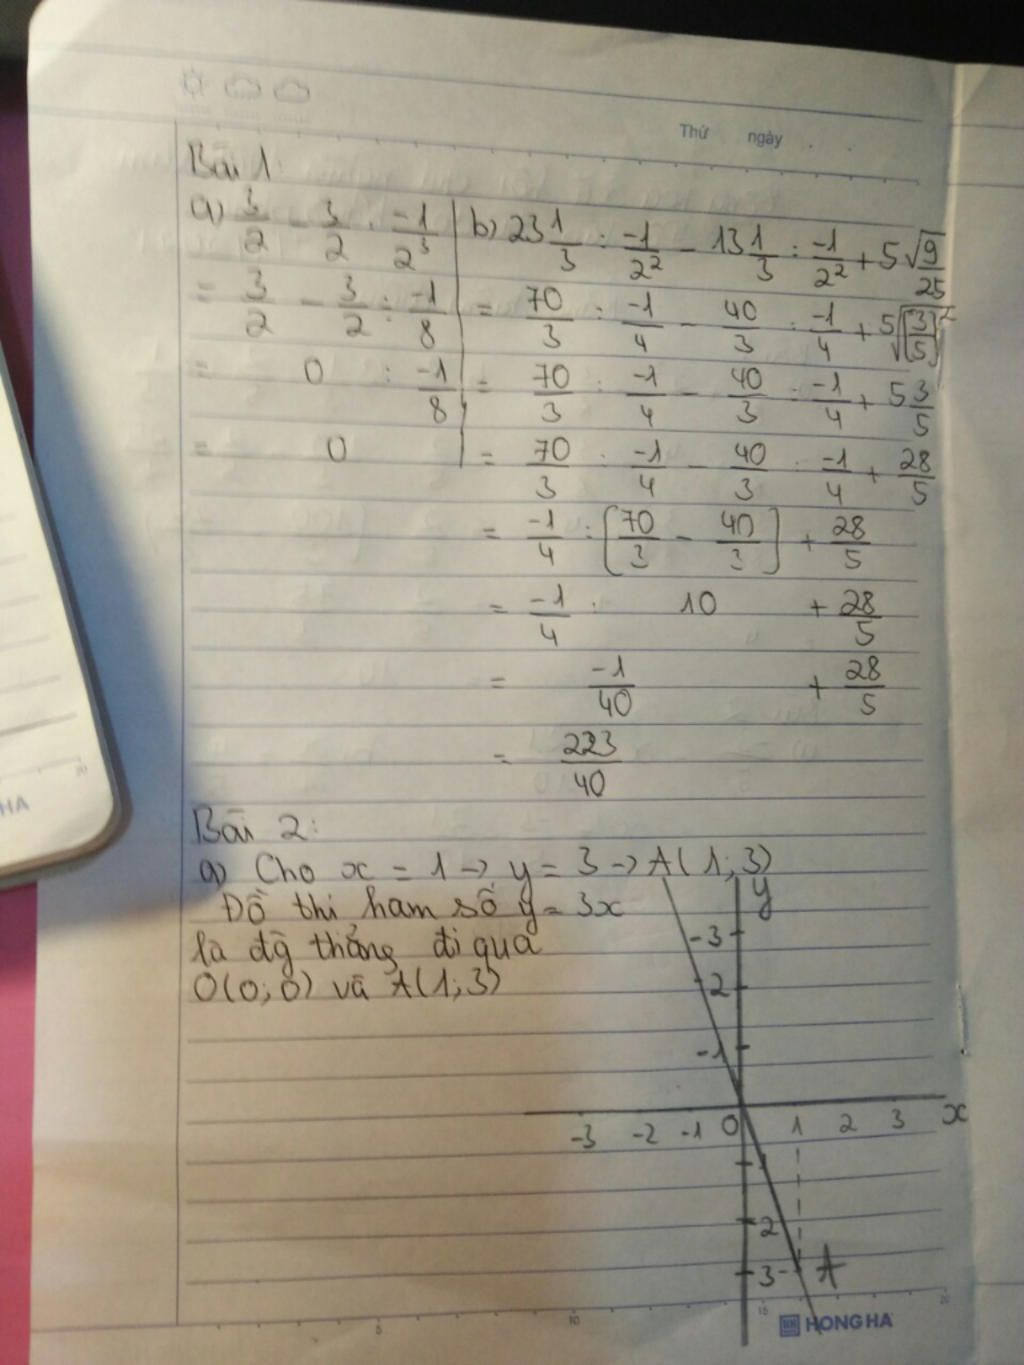 Thứ ngày
Bài 1:
a) 3/2 - 3/2 : -1/2^3
= 3/2 - 3/2 : -1/8
= 0 : -1/8
= 0
b) 23 1/3 : -1/2^2 - 13 1/3 : -1/2^2 + 5 √9/25
= 70/3 : -1/4 - 40/3 : -1/4 + 5 √[3/5]^2
= 70/3 : -1/4 - 40/3 : -1/4 + 5 3/5
= 70/3 : -1/4 - 40/3 : -1/4 + 28/5
= -1/4 : [70/3 - 40/3] + 28/5
= -1/4 : 10 + 28/5
= -1/40 + 28/5
= 223/40
Bài 2:
a) Cho x = 1 → y = 3 → A(1;3)
Đồ thị hàm số y = 3x
là đg thẳng đi qua
O(0;0) và A(1;3)
y
-3
-2
-1
-3 -2 -1 0 1 2 3 x
1
2
3 A
5 10 15 20
HONG HA
20
HA